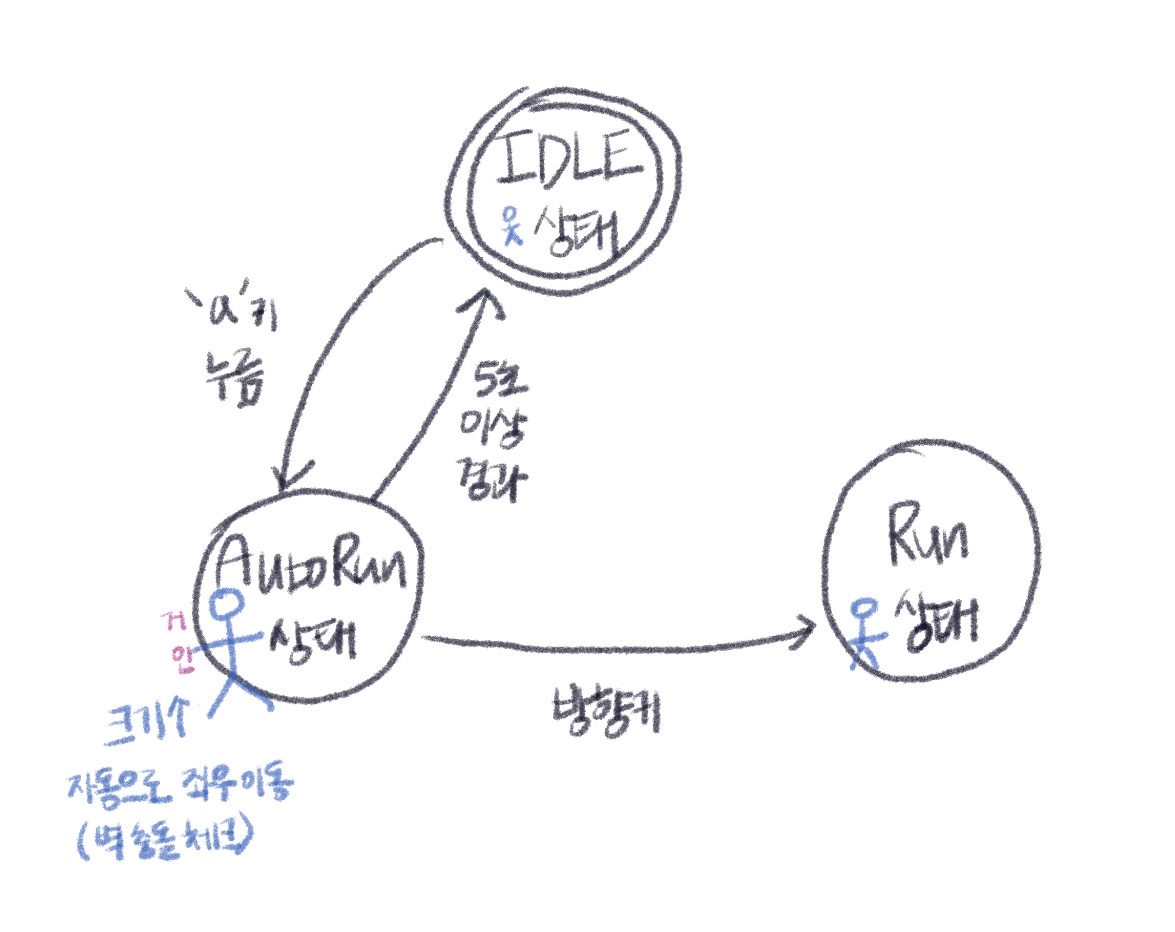 IDLE
상태
'a'키
누름
5초
이상
경과
AutoRun
상태
거
인
크기↑
자동으로 좌우이동
(벽 충돌 체크)
Run
상태
방향키